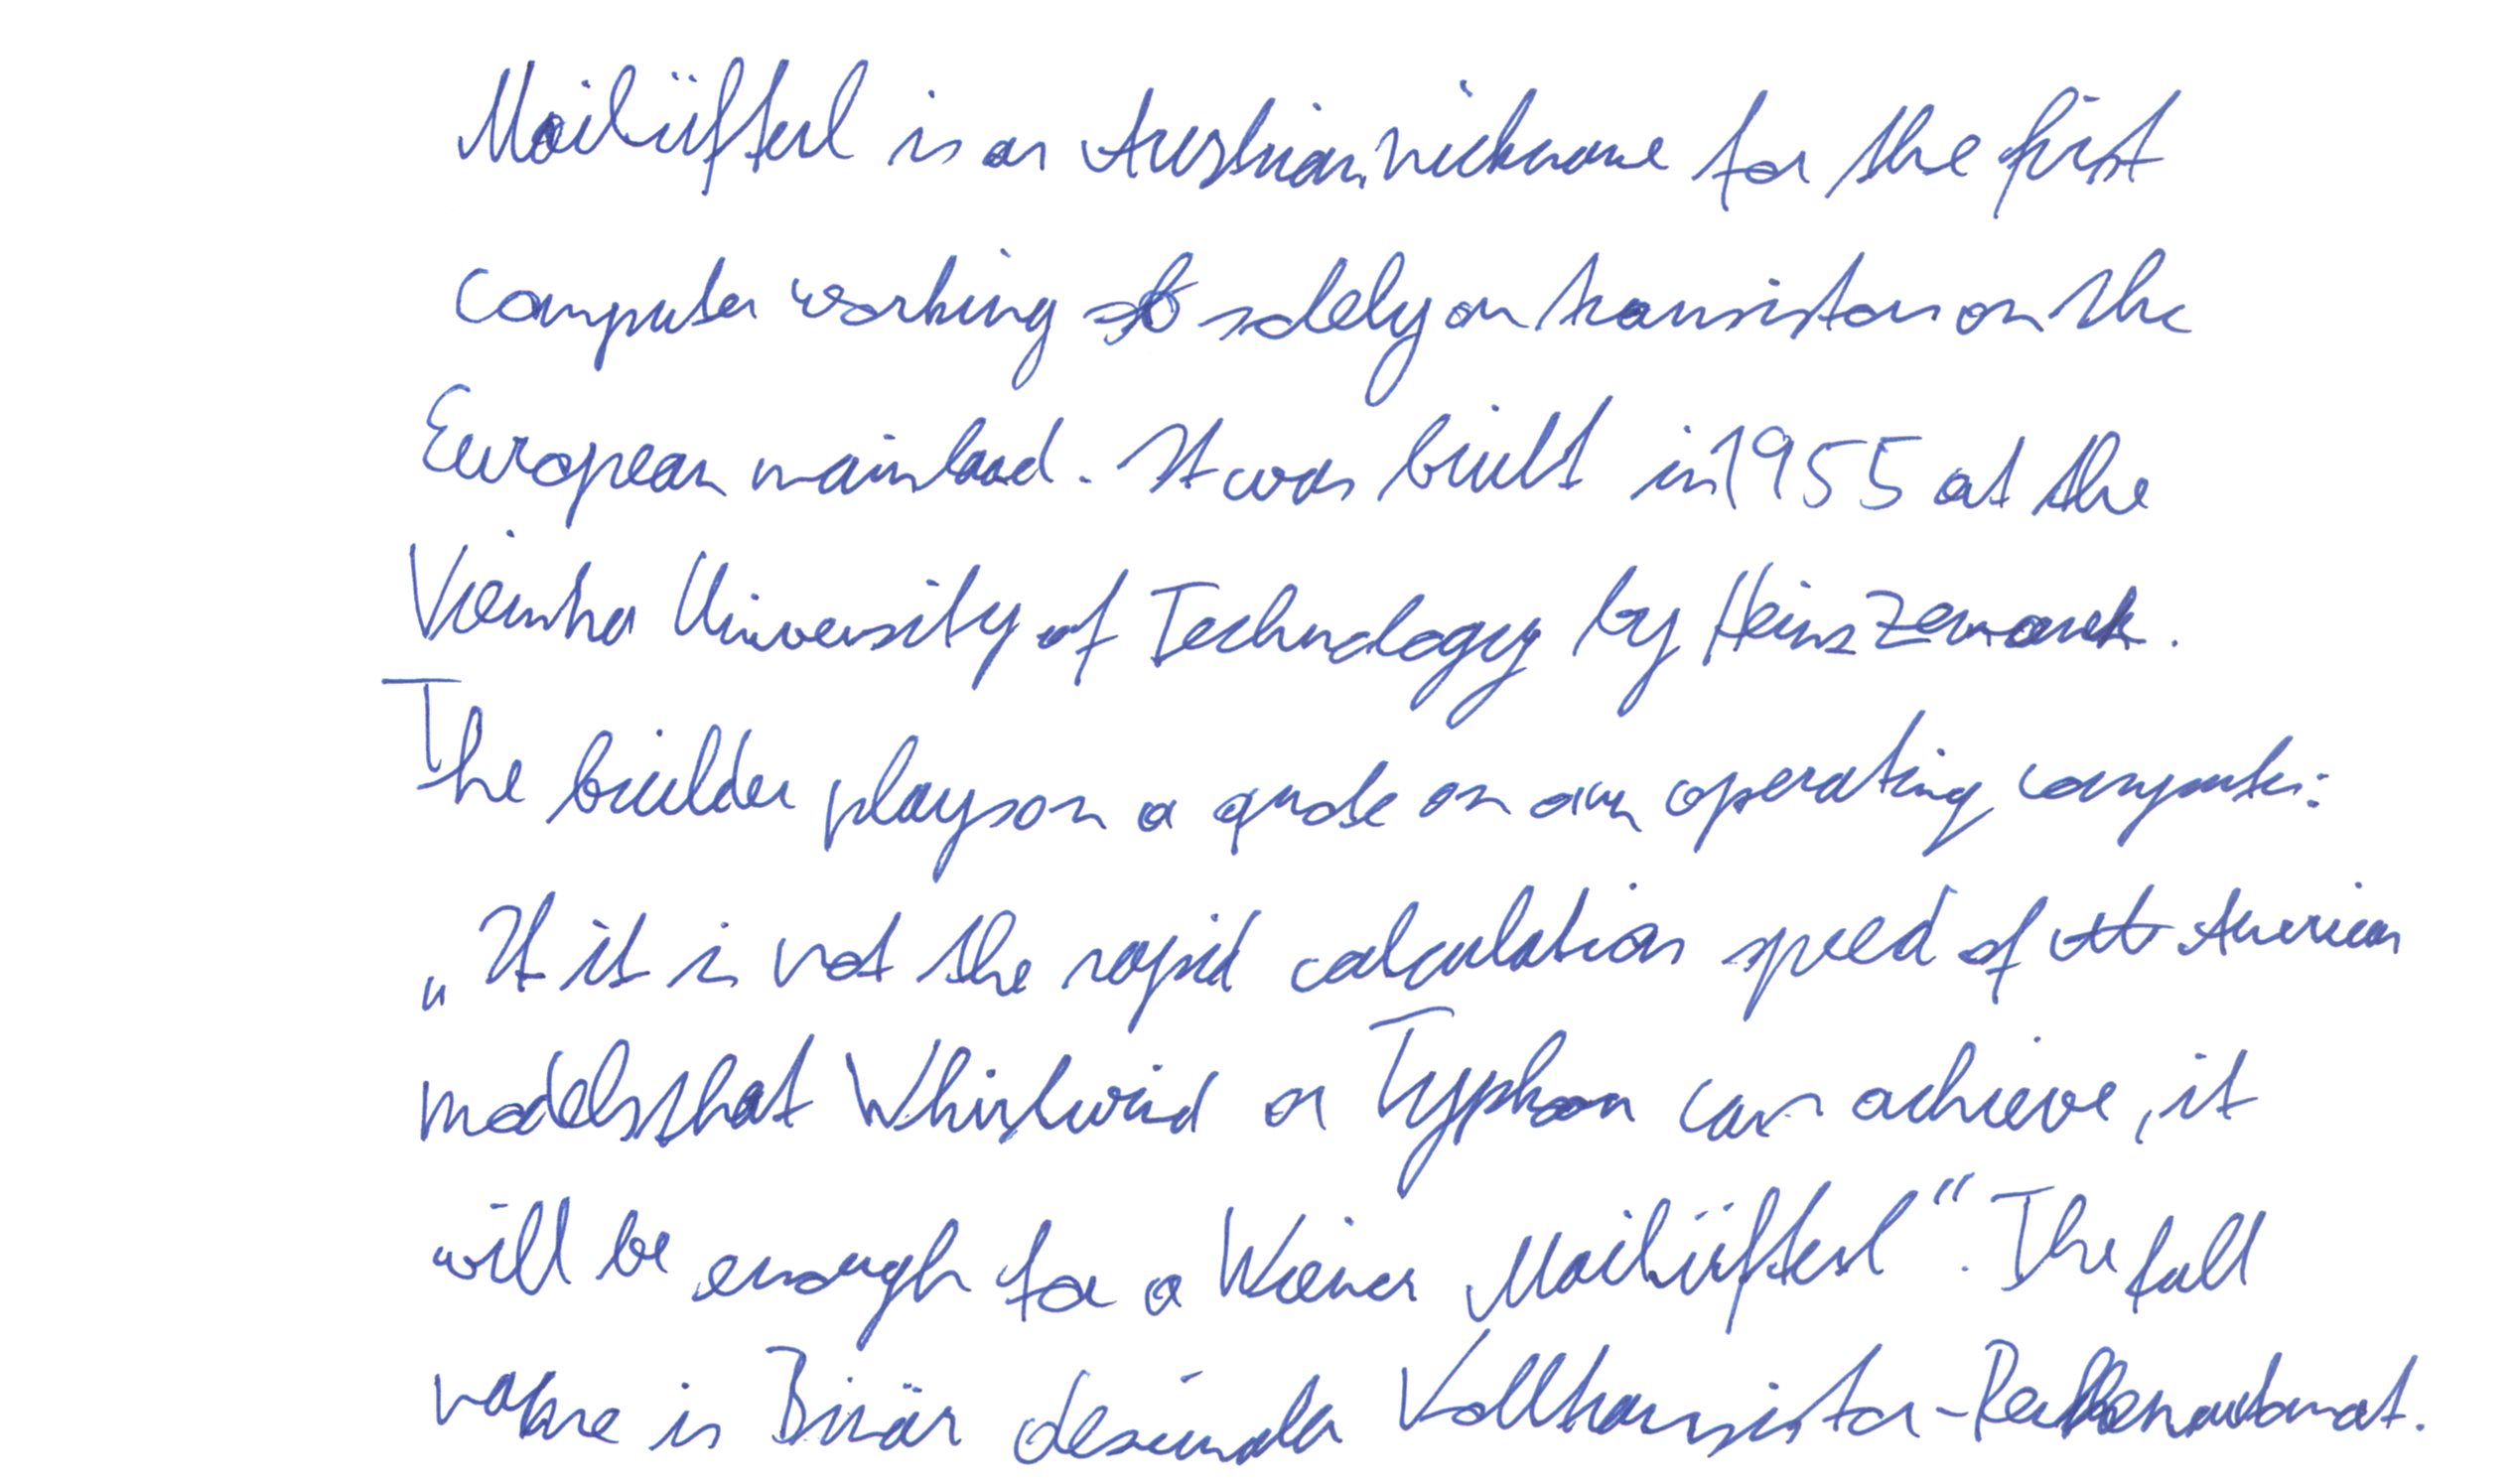 Mailüfterl is an Austrian nickname for the first
Computer working solely on transistors on the
European mainland. It was built in 1955 at the
Vienna University of Technology by Heinz Zemanek.
The builder plays on a quote on an operating computer:
„If it is not the rapid calculation speed of American
models that Whirlwind or Typhoon can achieve, it
will be enough for a Wiener Mailüfterl“. The full
name is Binär dezimaler Volltransistor-Rechenautomat.